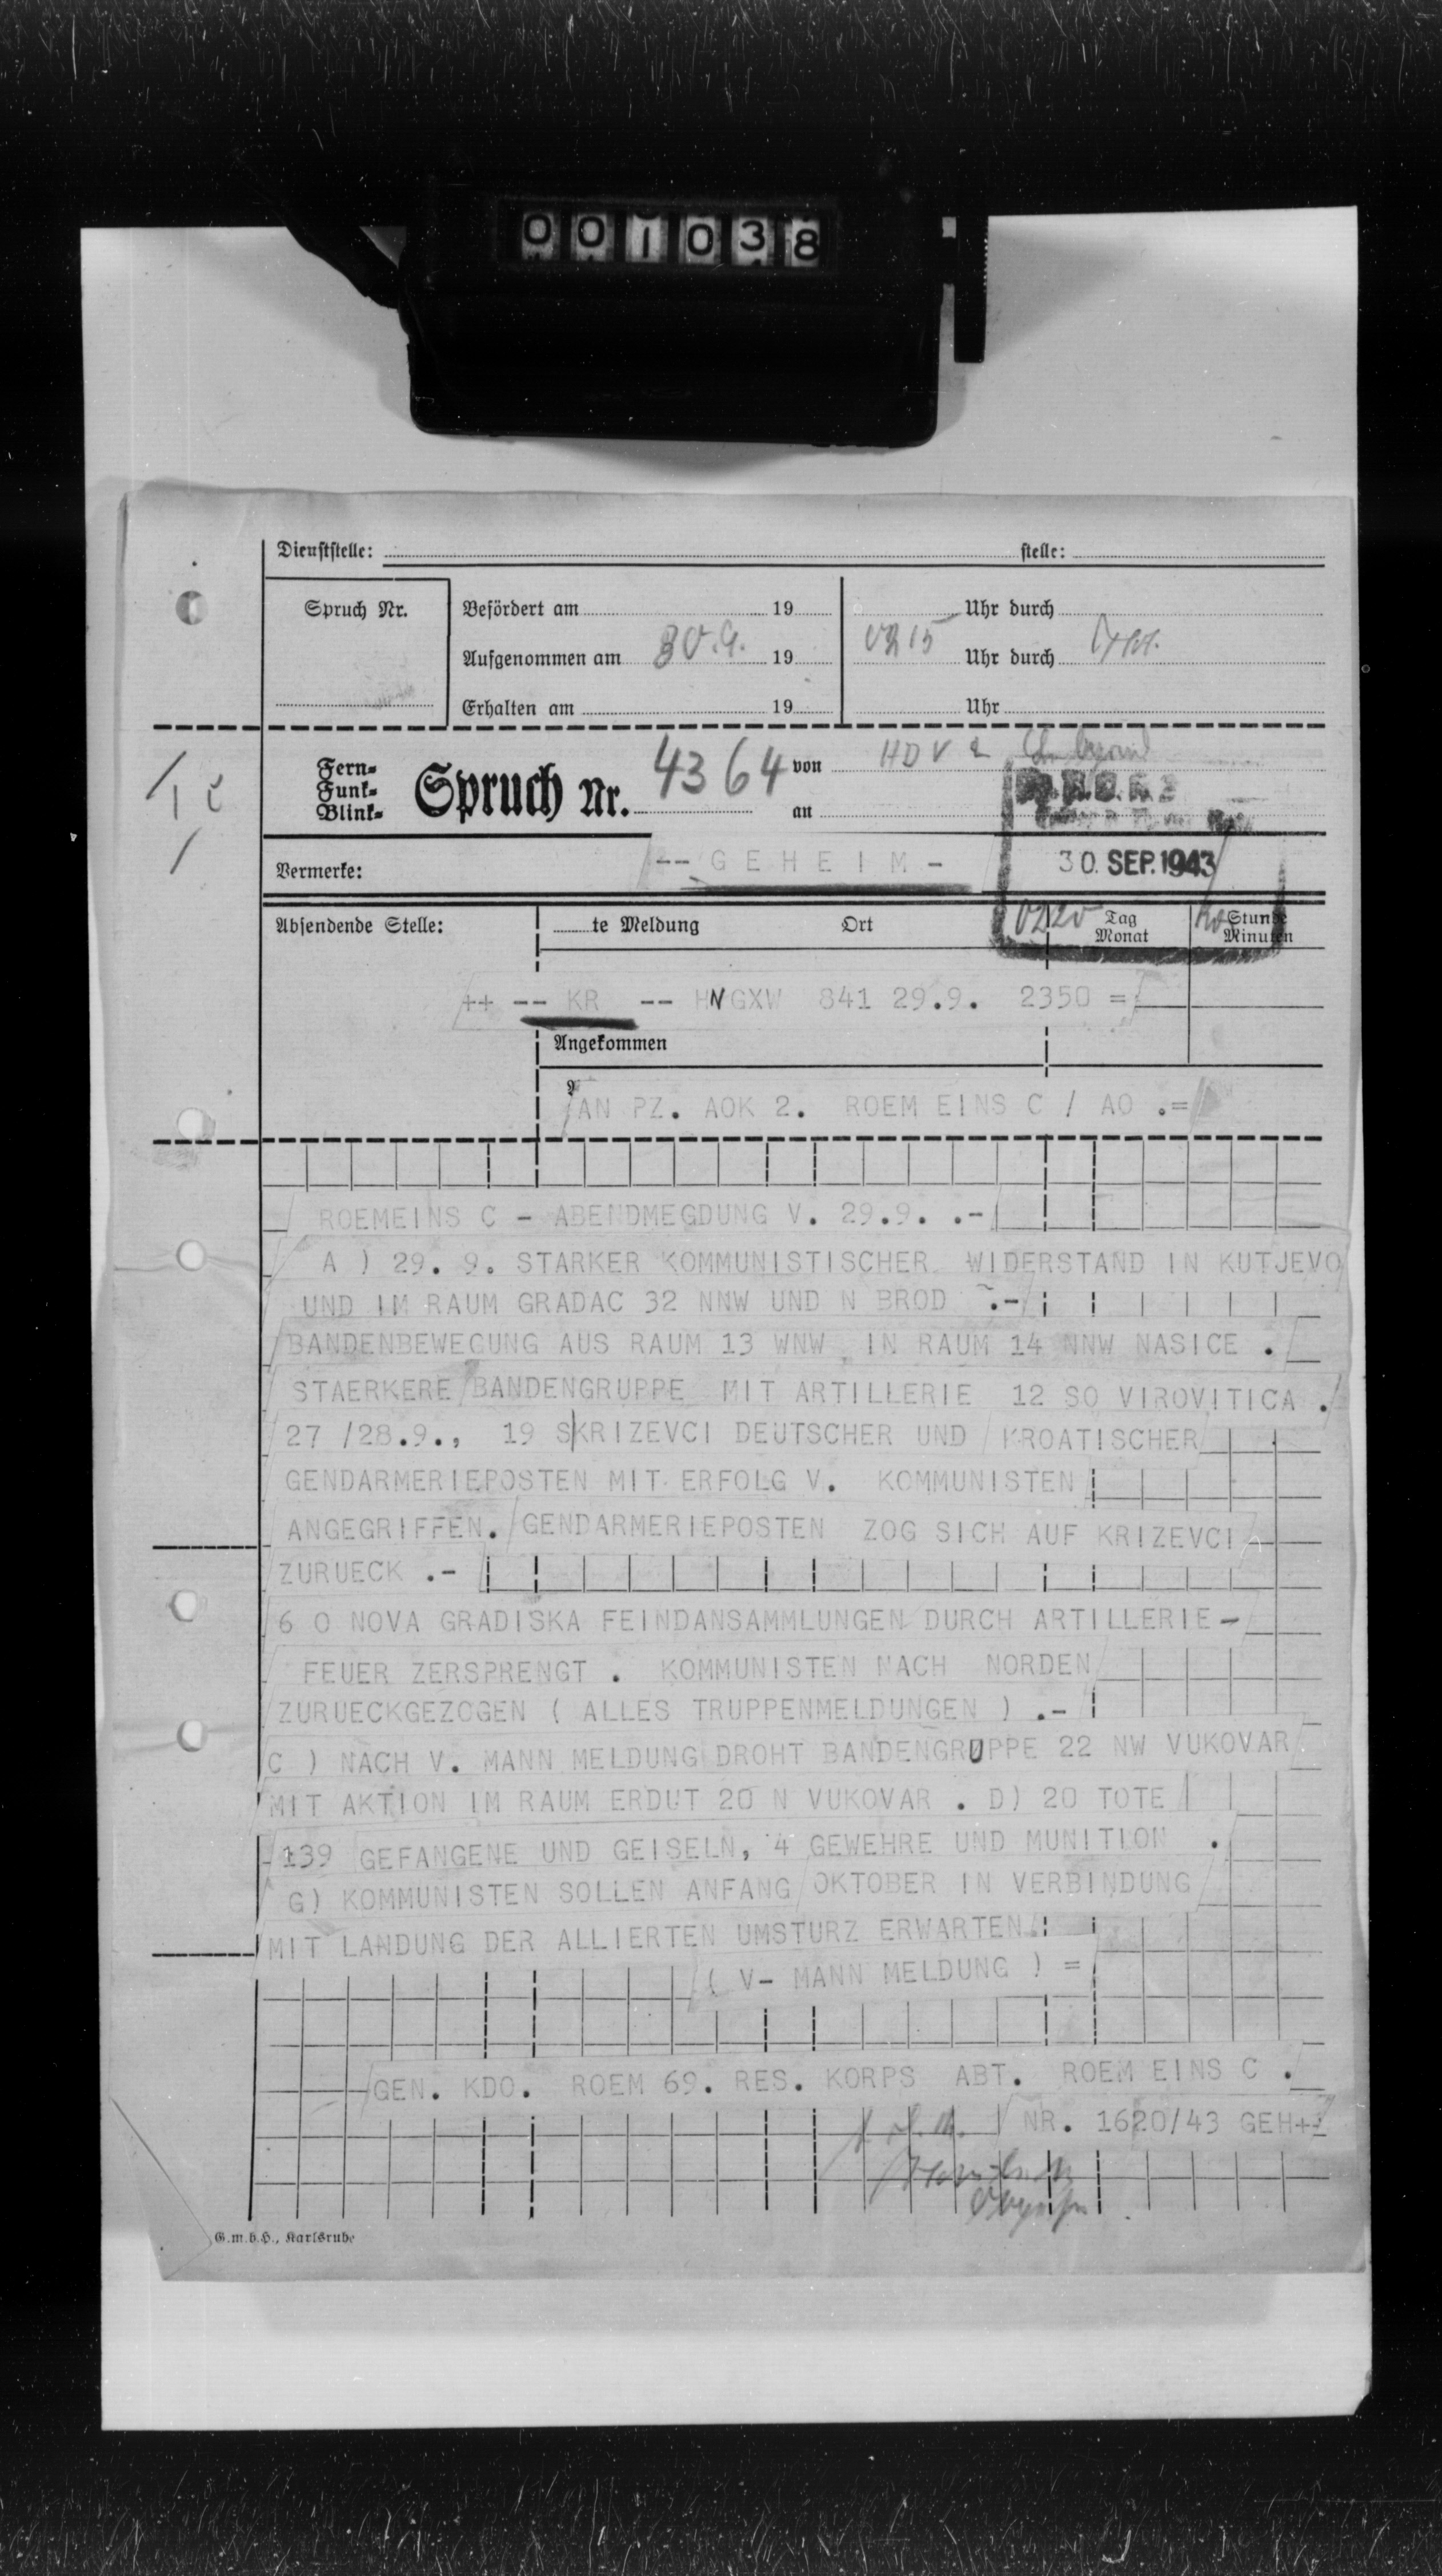 001038
Dienststelle: stelle:
Spruch Nr.
Befördert am 19 Uhr durch
Aufgenommen am 30.9. 19 0215 Uhr durch
Erhalten am 19 Uhr
Fern-
Funk-
Blink-
Spruch Nr. 4364 von HDV
an
Vermerke: -- G E H E I M -
30. SEP. 1943
Absendende Stelle: te Meldung Ort Tag Monat Stunde Minuten
0220
++ -- KR -- HNGXW 841 29.9. 2350 =
Angekommen
AN PZ. AOK 2. ROEM EINS C / AO .=
ROEMEINS C - ABENDMEGDUNG V. 29.9. .-
A ) 29. 9. STARKER KOMMUNISTISCHER WIDERSTAND IN KUTJEVO
UND IM RAUM GRADAC 32 NNW UND N BROD .-
BANDENBEWEGUNG AUS RAUM 13 WNW IN RAUM 14 NNW NASICE .
STAERKERE BANDENGRUPPE MIT ARTILLERIE 12 SO VIROVITICA .
27 /28.9., 19 S KRIZEVCI DEUTSCHER UND KROATISCHER
GENDARMERIEPOSTEN MIT ERFOLG V. KOMMUNISTEN
ANGEGRIFFEN. GENDARMERIEPOSTEN ZOG SICH AUF KRIZEVCI
ZURUECK .-
6 O NOVA GRADISKA FEINDANSAMMLUNGEN DURCH ARTILLERIE-
FEUER ZERSPRENGT . KOMMUNISTEN NACH NORDEN
ZURUECKGEZOGEN ( ALLES TRUPPENMELDUNGEN ) .-
C ) NACH V. MANN MELDUNG DROHT BANDENGRUPPE 22 NW VUKOVAR
MIT AKTION IM RAUM ERDUT 20 N VUKOVAR . D) 20 TOTE
139 GEFANGENE UND GEISELN, 4 GEWEHRE UND MUNITION .
G) KOMMUNISTEN SOLLEN ANFANG OKTOBER IN VERBINDUNG
MIT LANDUNG DER ALLIERTEN UMSTURZ ERWARTEN.
( V- MANN MELDUNG ) =
GEN. KDO. ROEM 69. RES. KORPS ABT. ROEM EINS C .
NR. 1620/43 GEH++
G.m.b.H., Karlsruhe